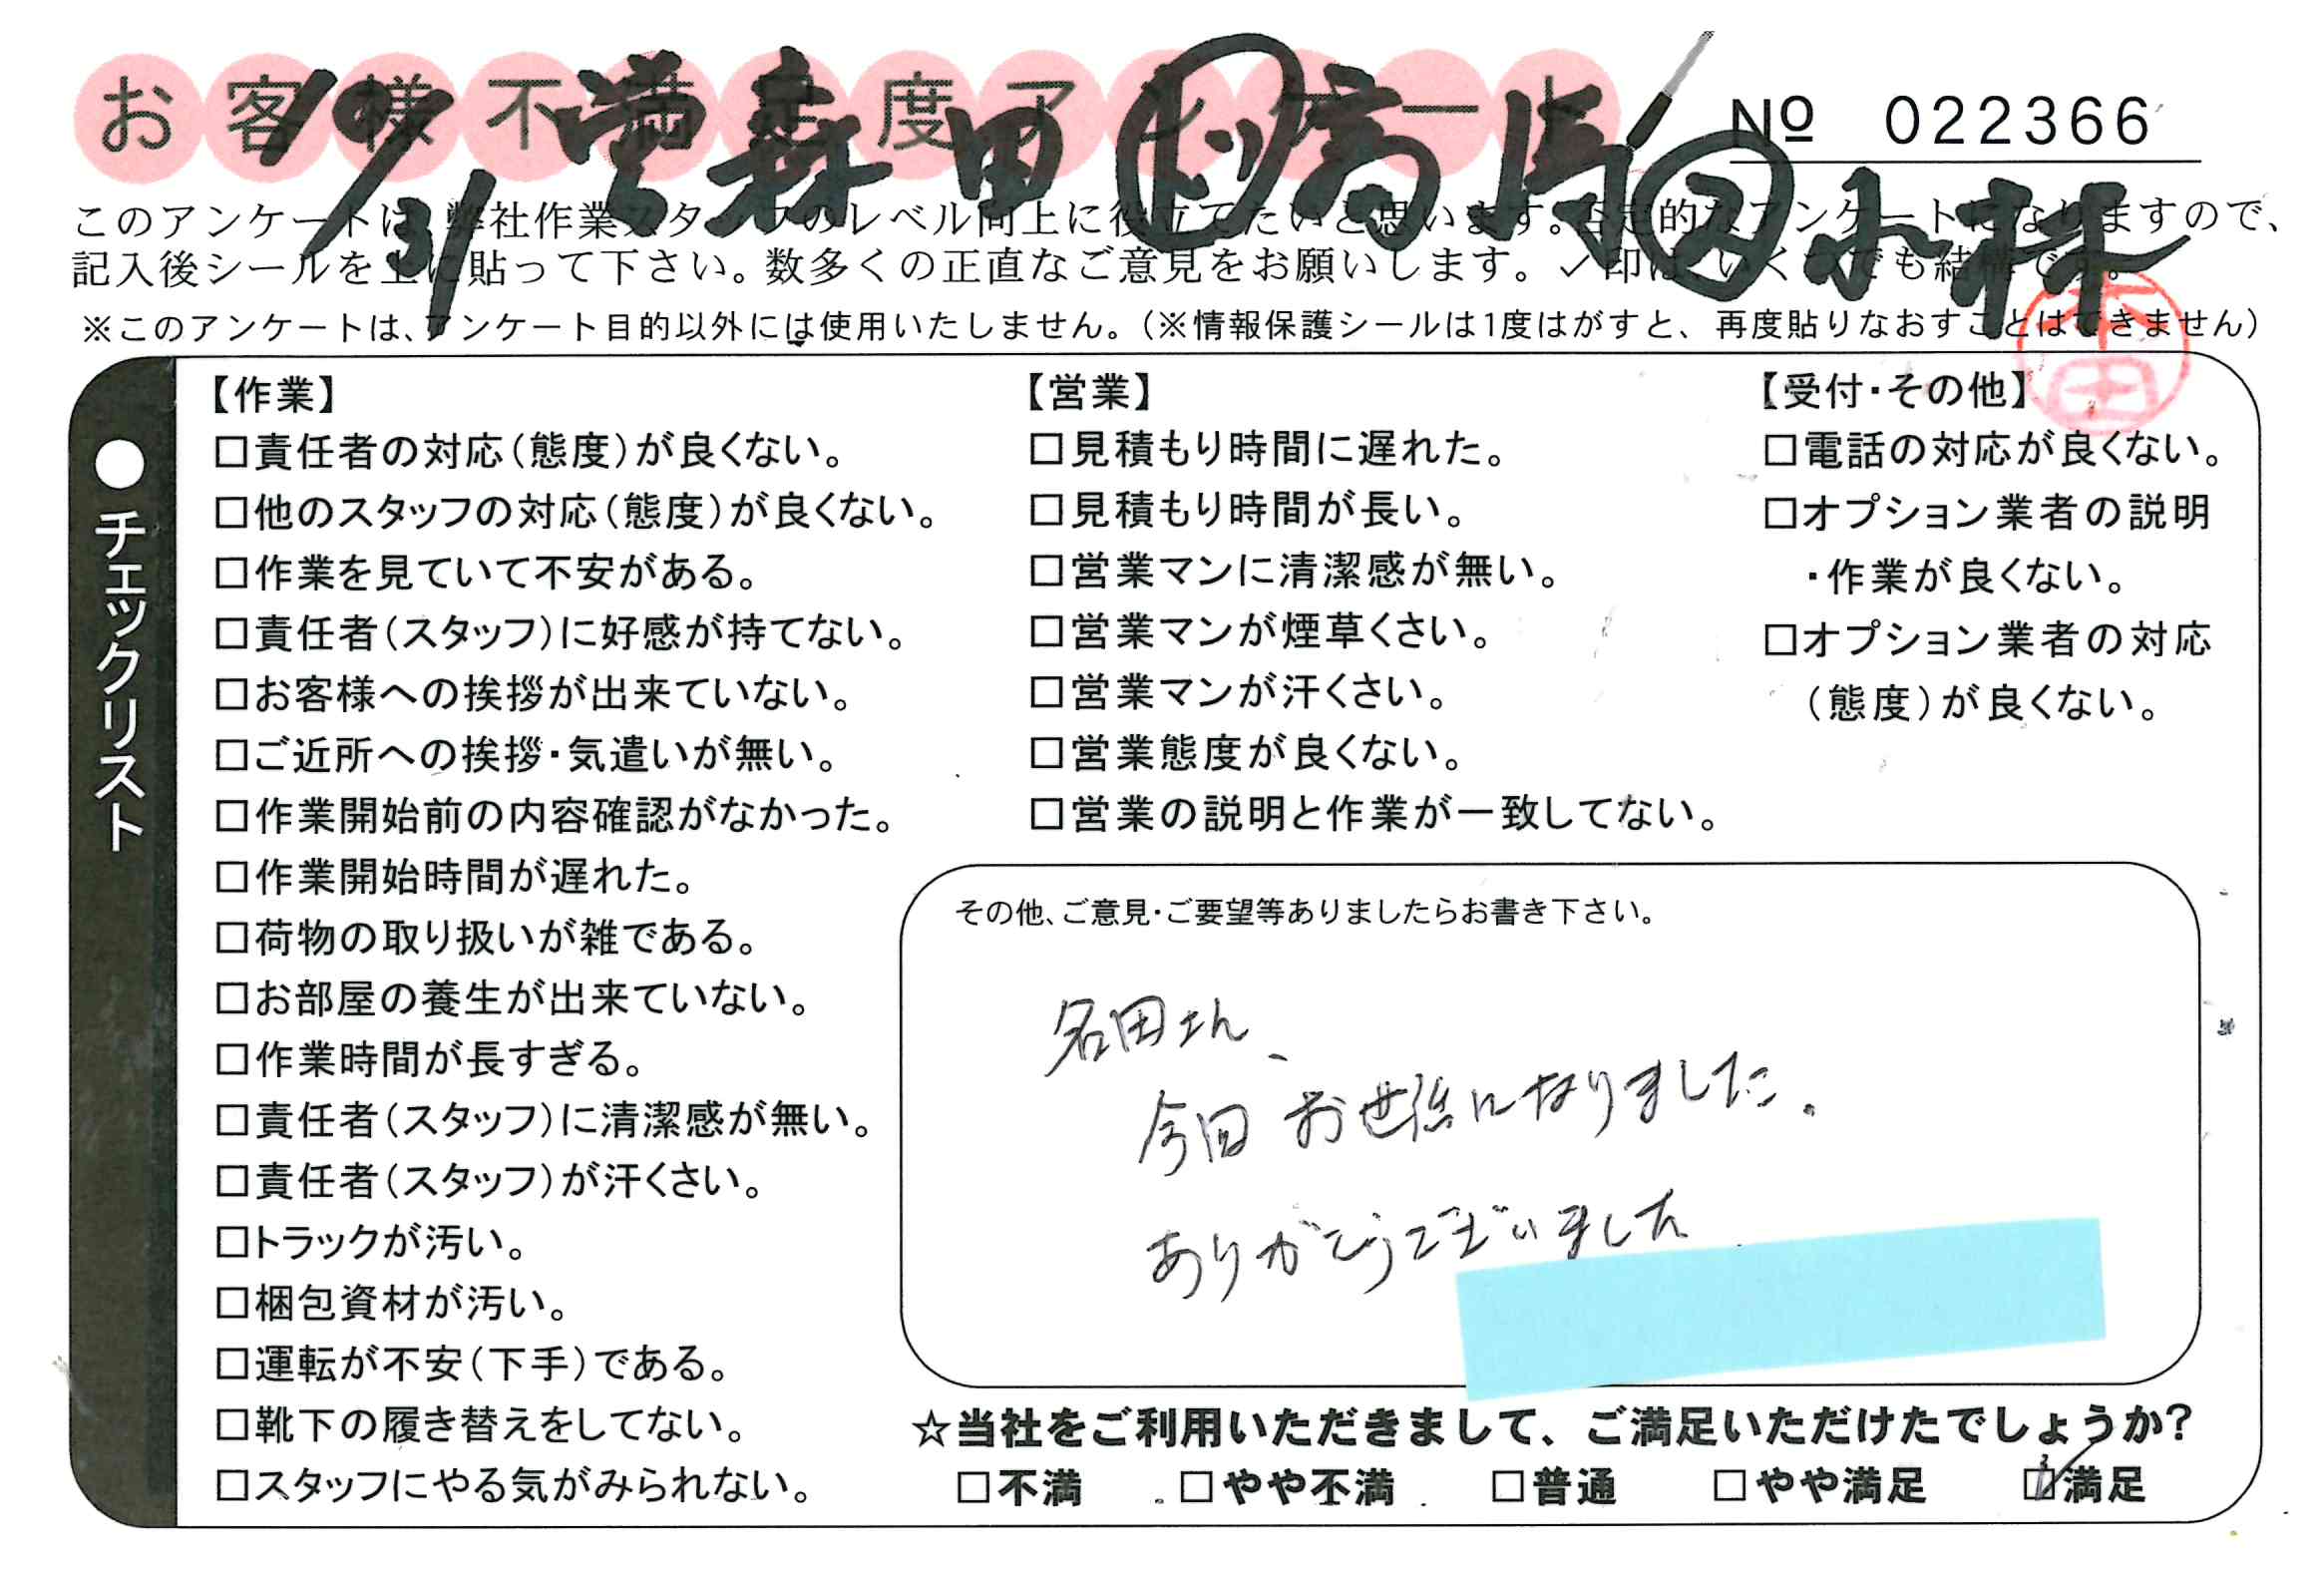 お客様不満足度アンケート
10/31 営 森田 トッ 高馬 2 小林
№ 022366
このアンケートは、弊社作業スタッフのレベル向上に役立てたいと思います。否定的なアンケートになりますので、
記入後シールを上に貼って下さい。数多くの正直なご意見をお願いします。✓印は、いくつでも結構です。
※このアンケートは、アンケート目的以外には使用いたしません。(※情報保護シールは1度はがすと、再度貼りなおすことはできません)
本田
●チェックリスト
【作業】
□責任者の対応(態度)が良くない。
□他のスタッフの対応(態度)が良くない。
□作業を見ていて不安がある。
□責任者(スタッフ)に好感が持てない。
□お客様への挨拶が出来ていない。
□ご近所への挨拶・気遣いが無い。
□作業開始前の内容確認がなかった。
□作業開始時間が遅れた。
□荷物の取り扱いが雑である。
□お部屋の養生が出来ていない。
□作業時間が長すぎる。
□責任者(スタッフ)に清潔感が無い。
□責任者(スタッフ)が汗くさい。
□トラックが汚い。
□梱包資材が汚い。
□運転が不安(下手)である。
□靴下の履き替えをしてない。
□スタッフにやる気がみられない。
【営業】
□見積もり時間に遅れた。
□見積もり時間が長い。
□営業マンに清潔感が無い。
□営業マンが煙草くさい。
□営業マンが汗くさい。
□営業態度が良くない。
□営業の説明と作業が一致してない。
【受付・その他】
□電話の対応が良くない。
□オプション業者の説明
・作業が良くない。
□オプション業者の対応
(態度)が良くない。
その他、ご意見・ご要望等ありましたらお書き下さい。
名田さん、
今回お世話になりました。
ありがとうございました
☆当社をご利用いただきまして、ご満足いただけたでしょうか?
□不満 □やや不満 □普通 □やや満足 ☑満足